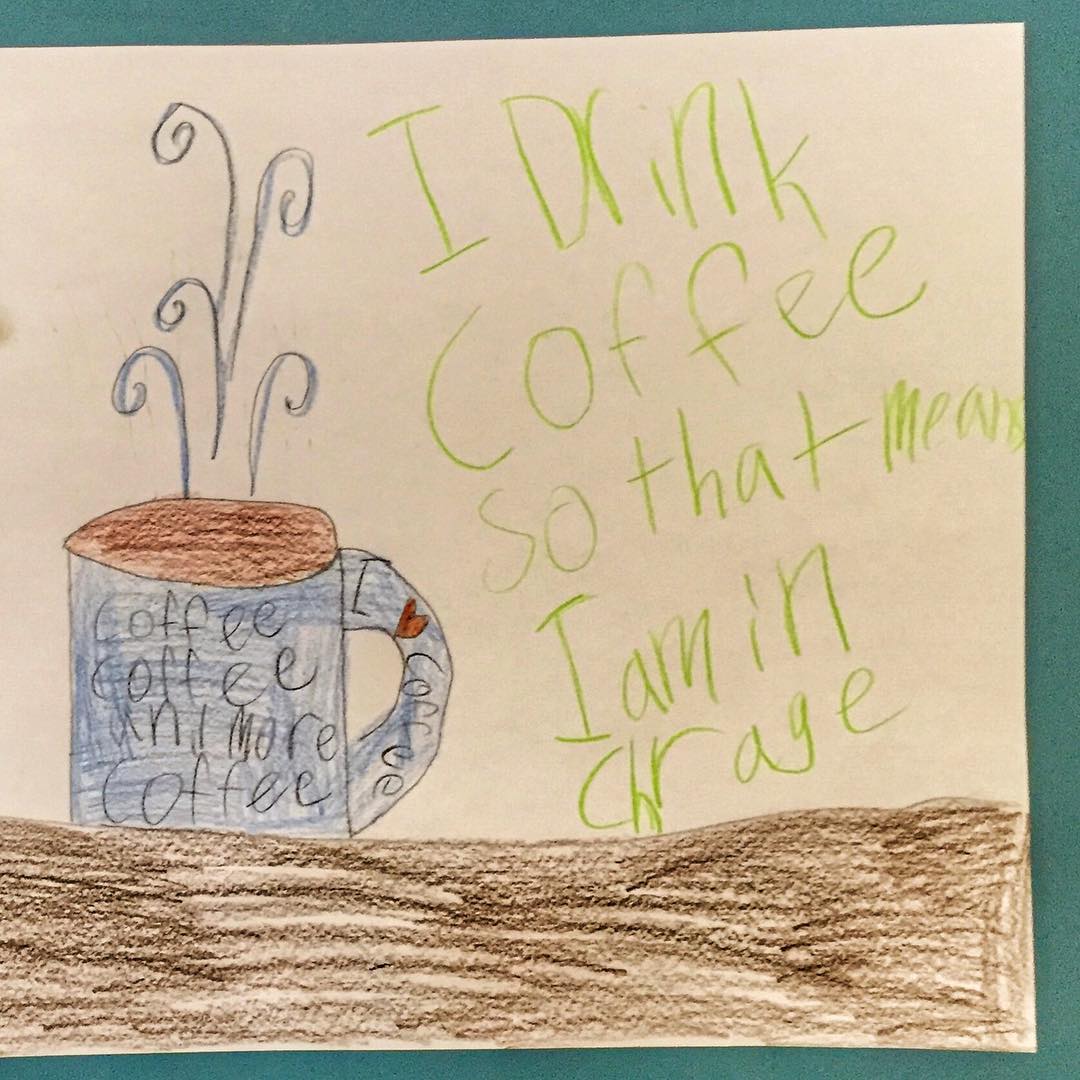 I Drink
Coffee
so that means
I am in
chrage
Coffee
Coffee
and more
Coffee
I
Coffee